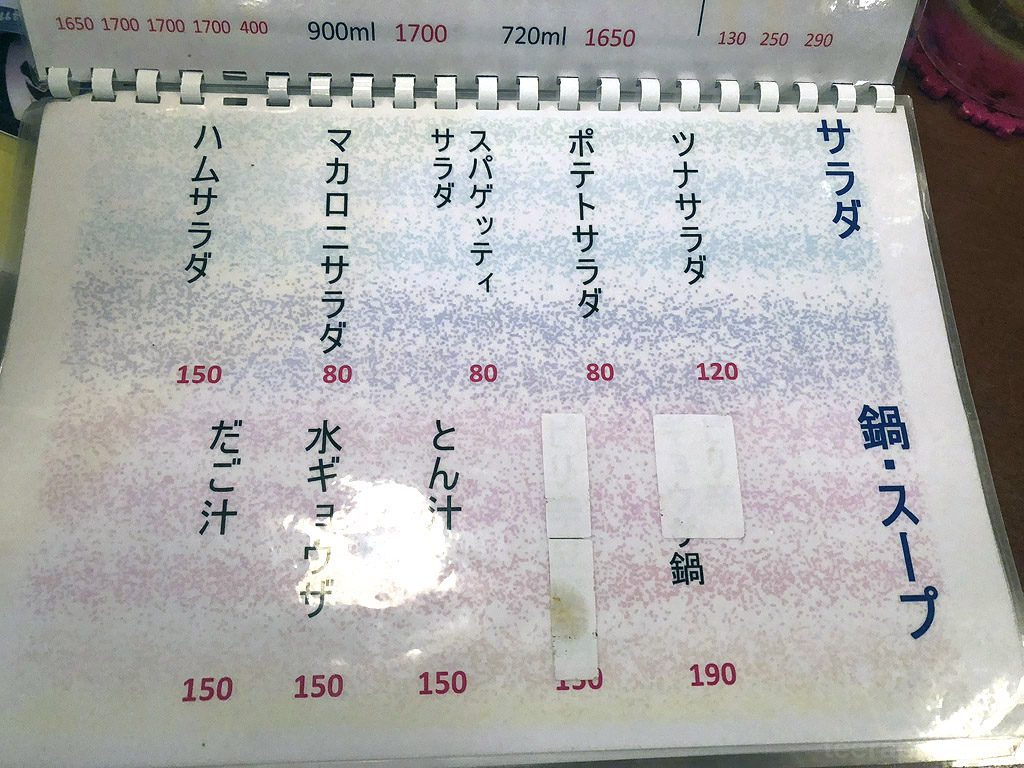 1650 1700 1700 1700 400 900ml 1700 720ml 1650 130 250 290
サラダ
ツナサラダ
120
ポテトサラダ
80
スパゲッティ
サラダ
80
マカロニサラダ
80
ハムサラダ
150
鍋・スープ
鍋
190
150
とん汁
150
水ギョウザ
150
だご汁
150